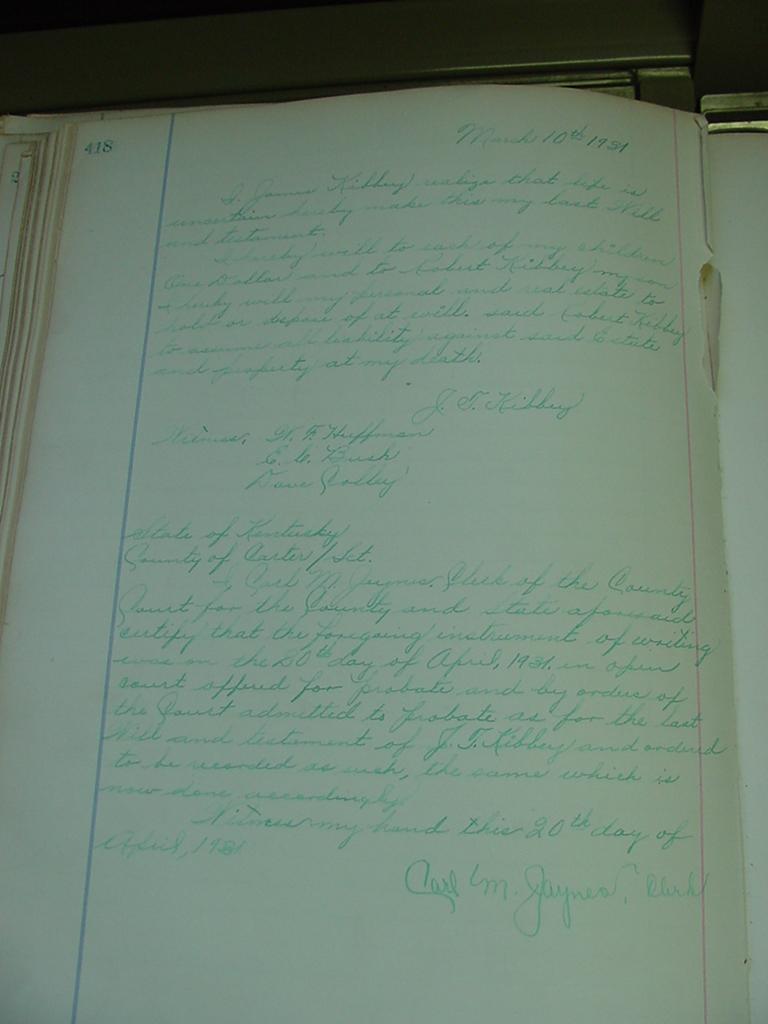 418
March 10th 1931
I, James Kibbey realize that life is
uncertain hereby make this my last Will
and testament.
I hereby will to each of my children
One Dollar and to Robert Kibbey my son
I hereby will my personal and real estate to
hold or dispose of at will. said Robert Kibbey
to assume all liability against said Estate
and property at my death.
J. T. Kibbey
Witness, W. F. Huffman
E. C. Bush
Dave Jolley
State of Kentucky
County of Carter / Sct.
I, Carl M. Jaynes, Clerk of the County
Court for the County and State aforesaid
certify that the foregoing instrument of writing
was on the 20th day of April, 1931, in open
court offered for probate and by orders of
the Court admitted to probate as for the last
Will and testement of J. T. Kibbey and ordered
to be recorded as such, the same which is
now done accordingly.
Witness my hand this 20th day of
April, 1931
Carl M. Jaynes, Clerk